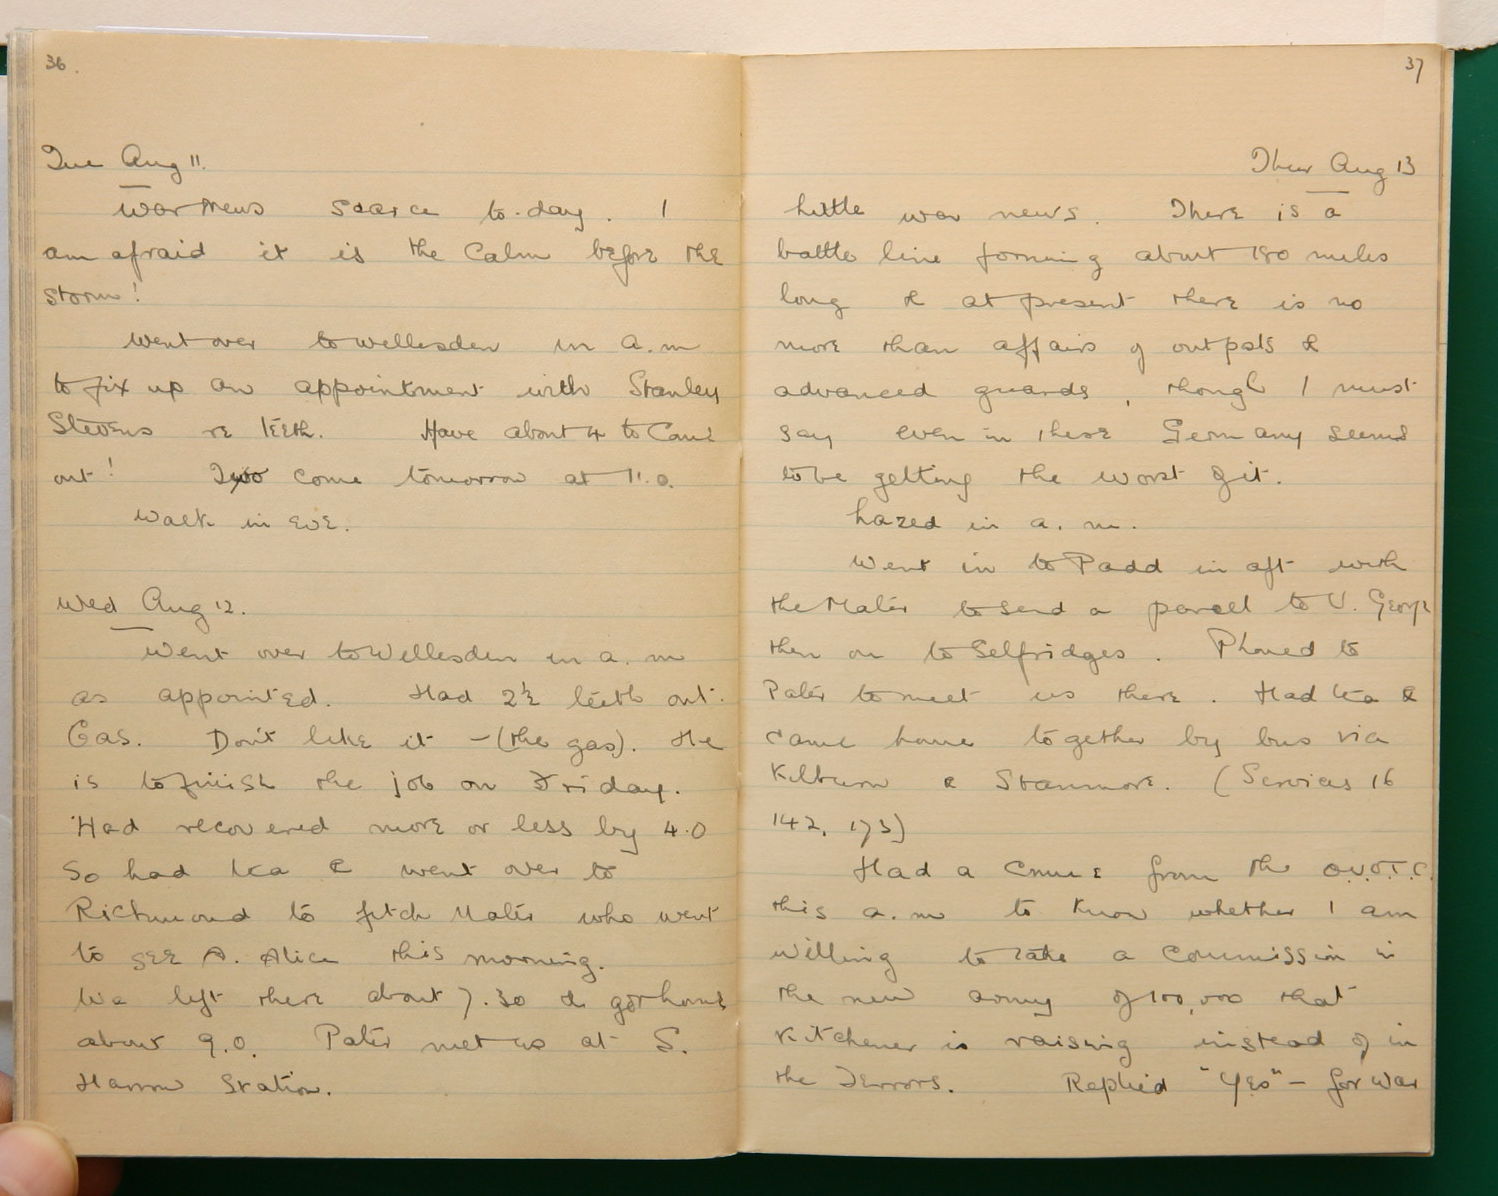 36.
Tue Aug 11.
War news scarce to-day. I
am afraid it is the calm before the
storm!
Went over to Wellesden in a.m
to fix up an appointment with Stanley
Stevens re teeth. Have about 4 to come
out! Two come tomorrow at 11.0.
Walk in eve.
Wed Aug 12.
Went over to Wellesden in a.m
as appointed. Had 2½ teeth out.
Gas. Don't like it - (the gas). He
is to finish the job on Friday.
Had recovered more or less by 4.0
So had tea & went over to
Richmond to fetch Mater who went
to see A. Alice this morning.
We left there about 7.30 & got home
about 9.0. Pater met us at S.
Harrow Station.
37
Thur Aug 13
Little war news. There is a
battle line forming about 180 miles
long & at present there is no
more than affairs of outposts &
advanced guards, though I must
say even in these Germany seems
to be getting the worst of it.
Lazed in a.m.
Went in to Padd in aft with
the Mater to send a parcel to U. George
then on to Selfridges. Phoned to
Pater to meet us there. Had tea &
came home together by bus via
Kilburn & Stanmore. (Services 16
142, 173)
Had a from the O.U.O.T.C.
this a.m to know whether I am
willing to take a commission in
the new army of 100,000 that
Kitchener is raising instead of in
the Terrors. Replied "Yes" - for war